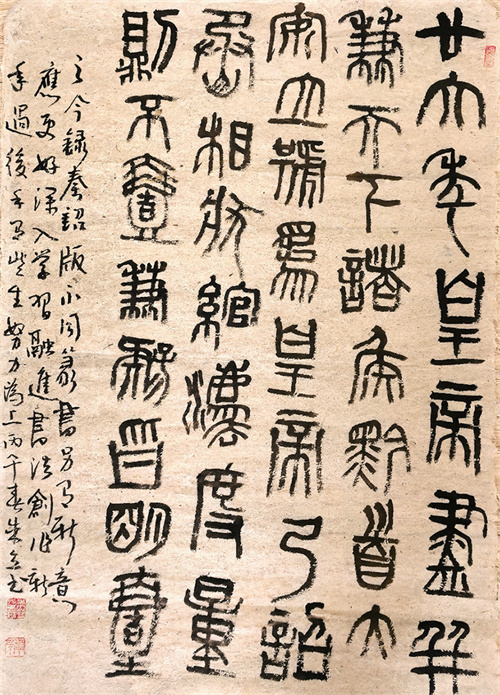 廿六年皇帝盡并
兼天下諸侯黔首大
安立號爲皇帝乃詔
丞相狀綰灋度量
則不壹歉疑皆明壹
之今錄秦詔版不同篆書另有新意
應更好深入學習融進書法創作新
年過後手寫些生努力為上丙午春朱書